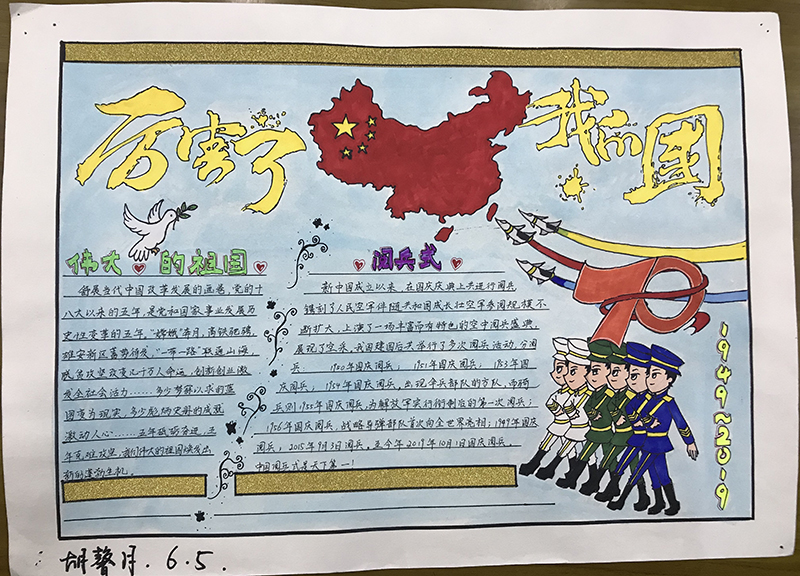 厉害了
我们的国
伟大的祖国
阅兵式
舒展当代中国改革发展的画卷，党的十
八大以来的五年，是党和国家事业发展历
史性变革的五年。"嫦娥"奔月，高铁驰骋，
雄安新区蓄势待发，"一带一路"联通山海，
脱贫攻坚改变几千万人命运，创新创业激
发全社会活力……多少梦寐以求的蓝
图变为现实，多少彪炳史册的成就
激动人心……五年砥砺奋进，五
年克难攻坚，我们伟大的祖国焕发出
新中国成立以来，在国庆庆典上共进行阅兵
镌刻了人民空军伴随共和国成长壮空军参阅规模不
断扩大，上演了一场丰富而有特色的空中阅兵盛典，
展现了空兵。我国建国后共举行了多次阅兵活动，分阅
兵 1950年国庆阅兵， 1951年国庆阅兵， 1953年国
庆阅兵， 1954年国庆阅兵。出现伞兵部队的方队，而骑
兵则1955年国庆阅兵，为解放军实行衔制后的第一次阅兵；
1956年国庆阅兵，战略导弹部队首次向全世界亮相；1987年国庆
阅兵； 2015年9月3日阅兵。至今年2019年10月1日国庆阅兵。
中国阅兵式是天下第一！
70
1949~2019
胡馨月. 6.5.